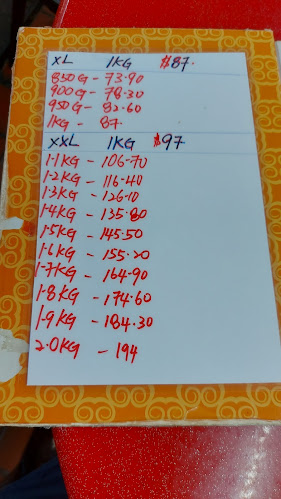 XL 1KG $87.
850G - 73.90
900G - 78.30
950G - 82.60
1KG - 87.
XXL 1KG $97
1.1KG - 106.70
1.2KG - 116.40
1.3KG - 126.10
1.4KG - 135.80
1.5KG - 145.50
1.6KG - 155.20
1.7KG - 164.90
1.8KG - 174.60
1.9KG - 184.30
2.0KG - 194